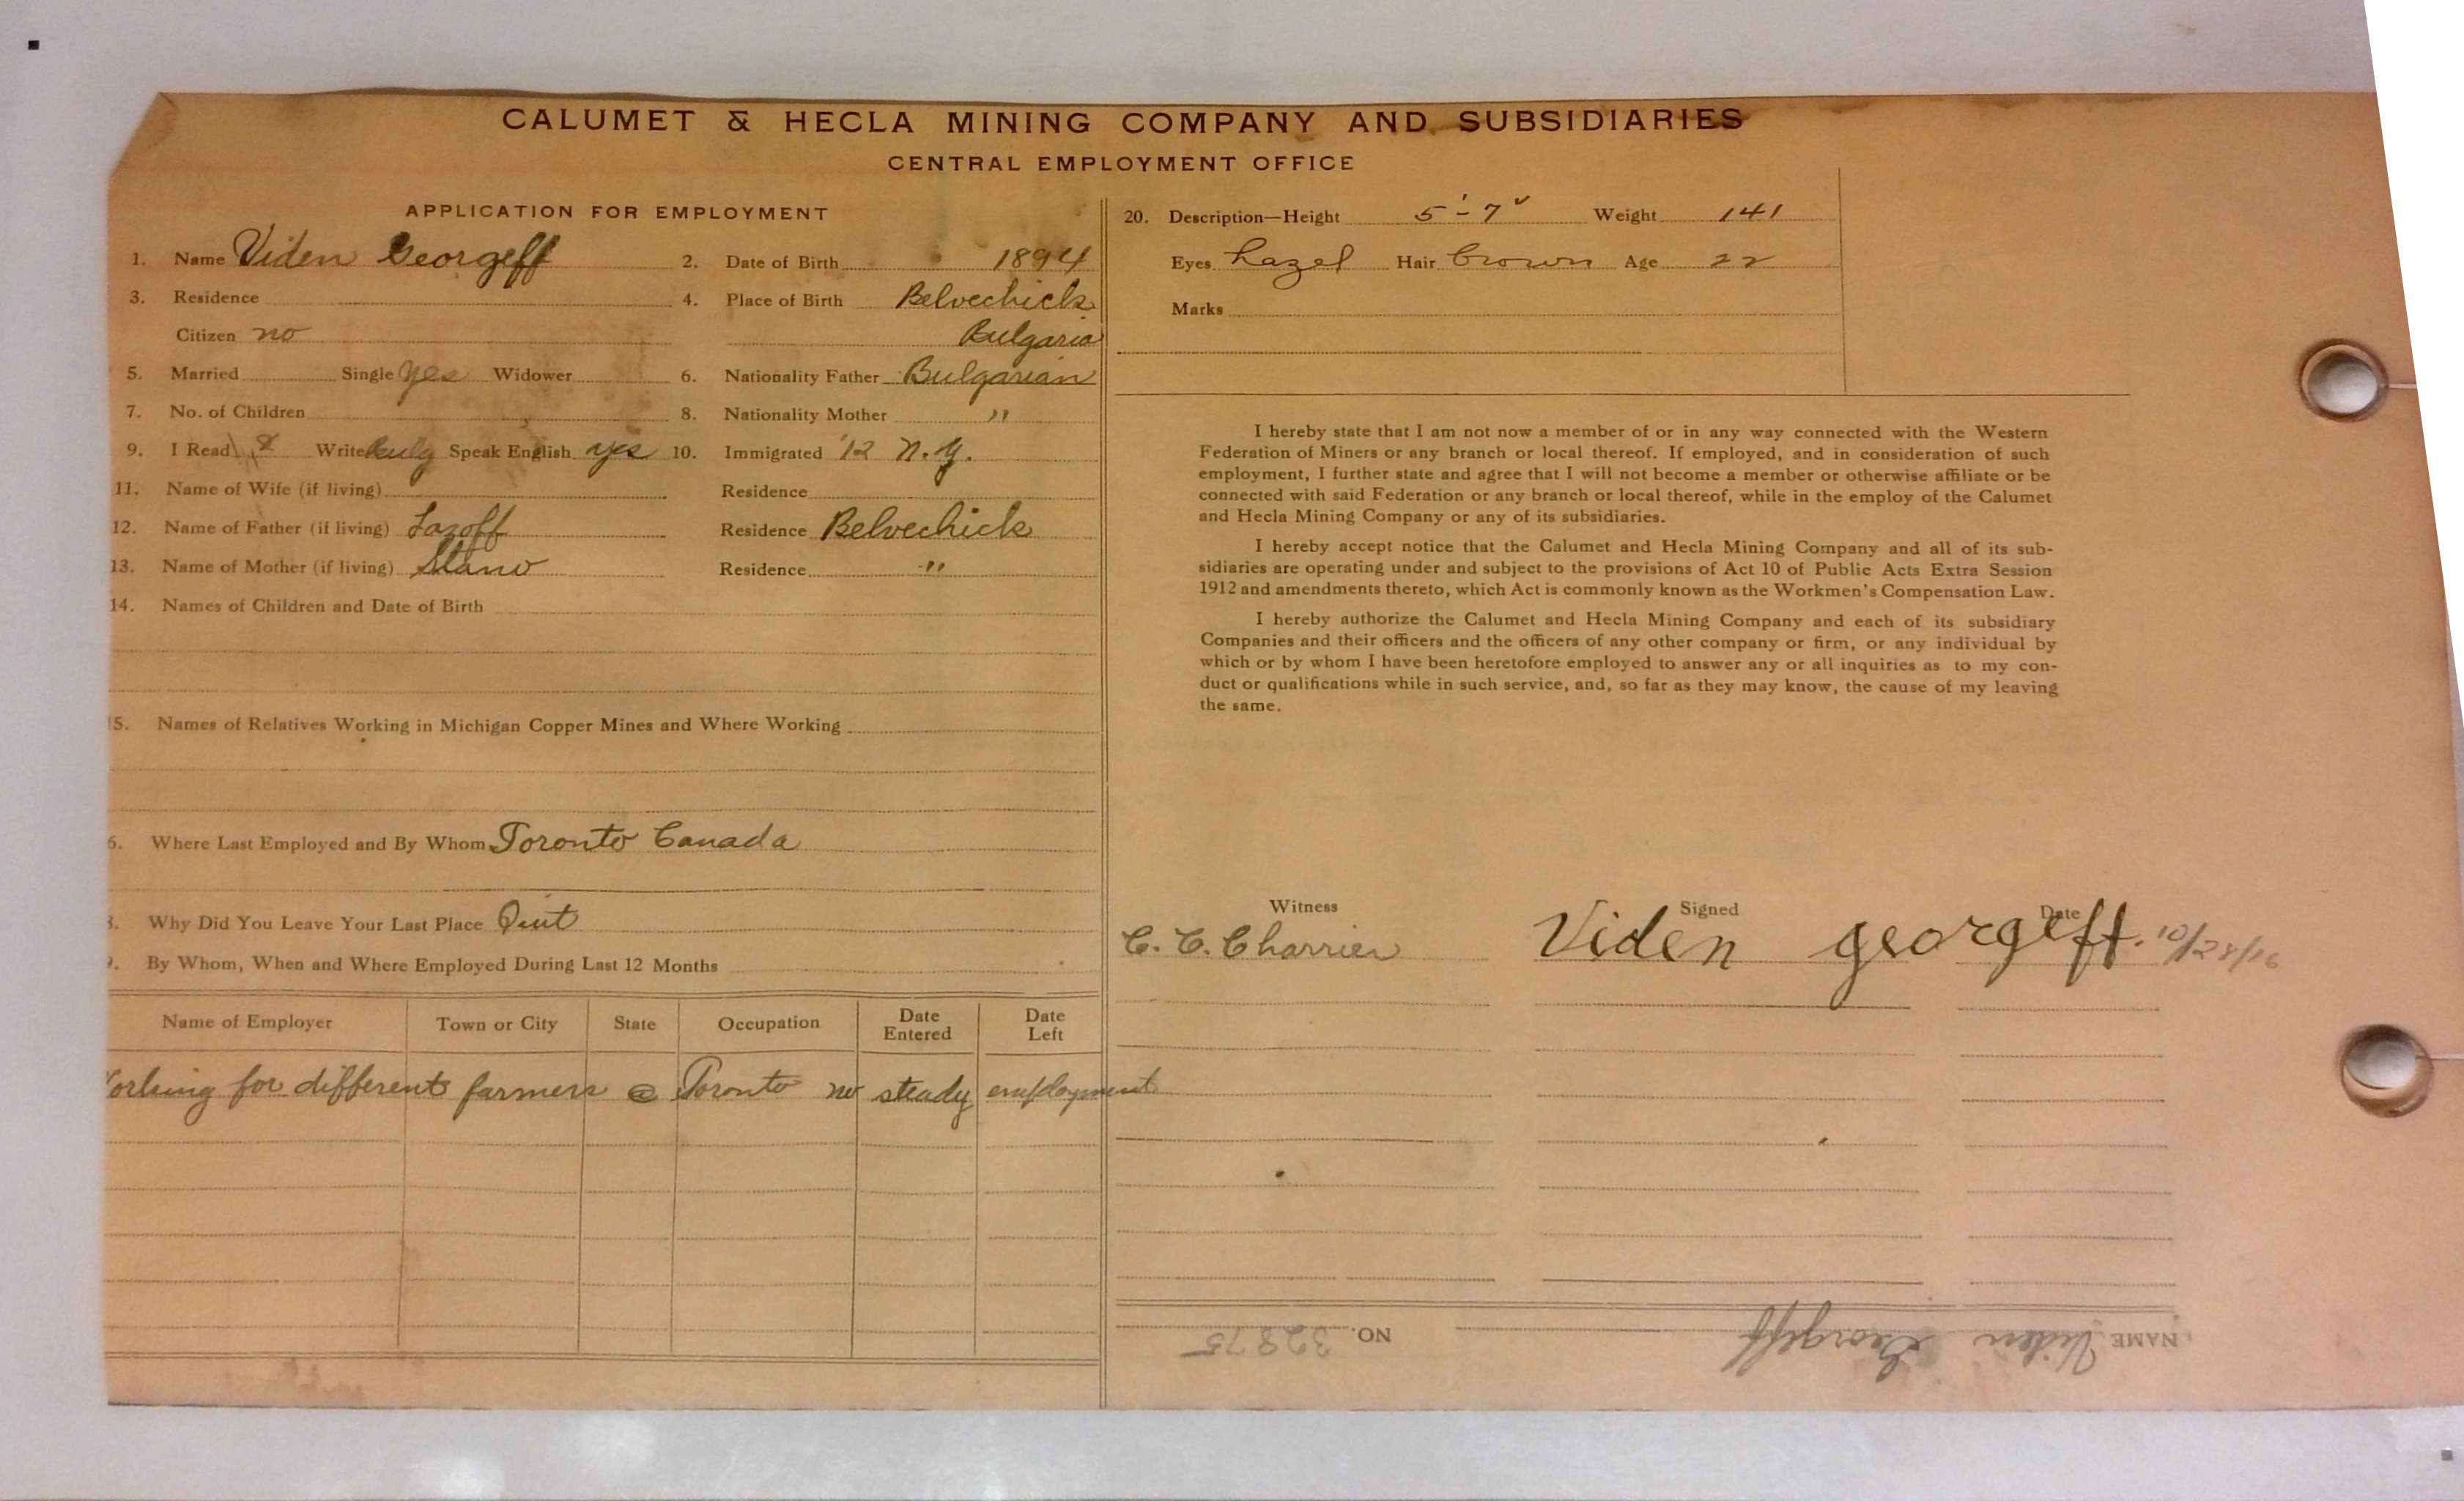 CALUMET & HECLA MINING COMPANY AND SUBSIDIARIES
CENTRAL EMPLOYMENT OFFICE
APPLICATION FOR EMPLOYMENT
1. Name Viden Georgeff 2. Date of Birth 1894
3. Residence 4. Place of Birth Belvechick
Citizen no Bulgaria
5. Married Single yes Widower 6. Nationality Father Bulgarian
7. No. of Children 8. Nationality Mother "
9. I Read & Write Bulg Speak English yes 10. Immigrated '12 N.Y.
11. Name of Wife (if living) Residence
12. Name of Father (if living) Lazoff Residence Belvechick
13. Name of Mother (if living) Stano Residence "
14. Names of Children and Date of Birth
15. Names of Relatives Working in Michigan Copper Mines and Where Working
6. Where Last Employed and By Whom Toronto Canada
8. Why Did You Leave Your Last Place Quit
9. By Whom, When and Where Employed During Last 12 Months
Name of Employer Town or City State Occupation Date Entered Date Left
Working for different farmers @ Toronto no steady employment
20. Description—Height 5'-7" Weight 141
Eyes hazel Hair Brown Age 22
Marks
I hereby state that I am not now a member of or in any way connected with the Western
Federation of Miners or any branch or local thereof. If employed, and in consideration of such
employment, I further state and agree that I will not become a member or otherwise affiliate or be
connected with said Federation or any branch or local thereof, while in the employ of the Calumet
and Hecla Mining Company or any of its subsidiaries.
I hereby accept notice that the Calumet and Hecla Mining Company and all of its sub-
sidiaries are operating under and subject to the provisions of Act 10 of Public Acts Extra Session
1912 and amendments thereto, which Act is commonly known as the Workmen's Compensation Law.
I hereby authorize the Calumet and Hecla Mining Company and each of its subsidiary
Companies and their officers and the officers of any other company or firm, or any individual by
which or by whom I have been heretofore employed to answer any or all inquiries as to my con-
duct or qualifications while in such service, and, so far as they may know, the cause of my leaving
the same.
Witness Signed Date
C. C. Charrier Viden georgeff. 10/28/16
NAME Viden Georgeff NO. 32875